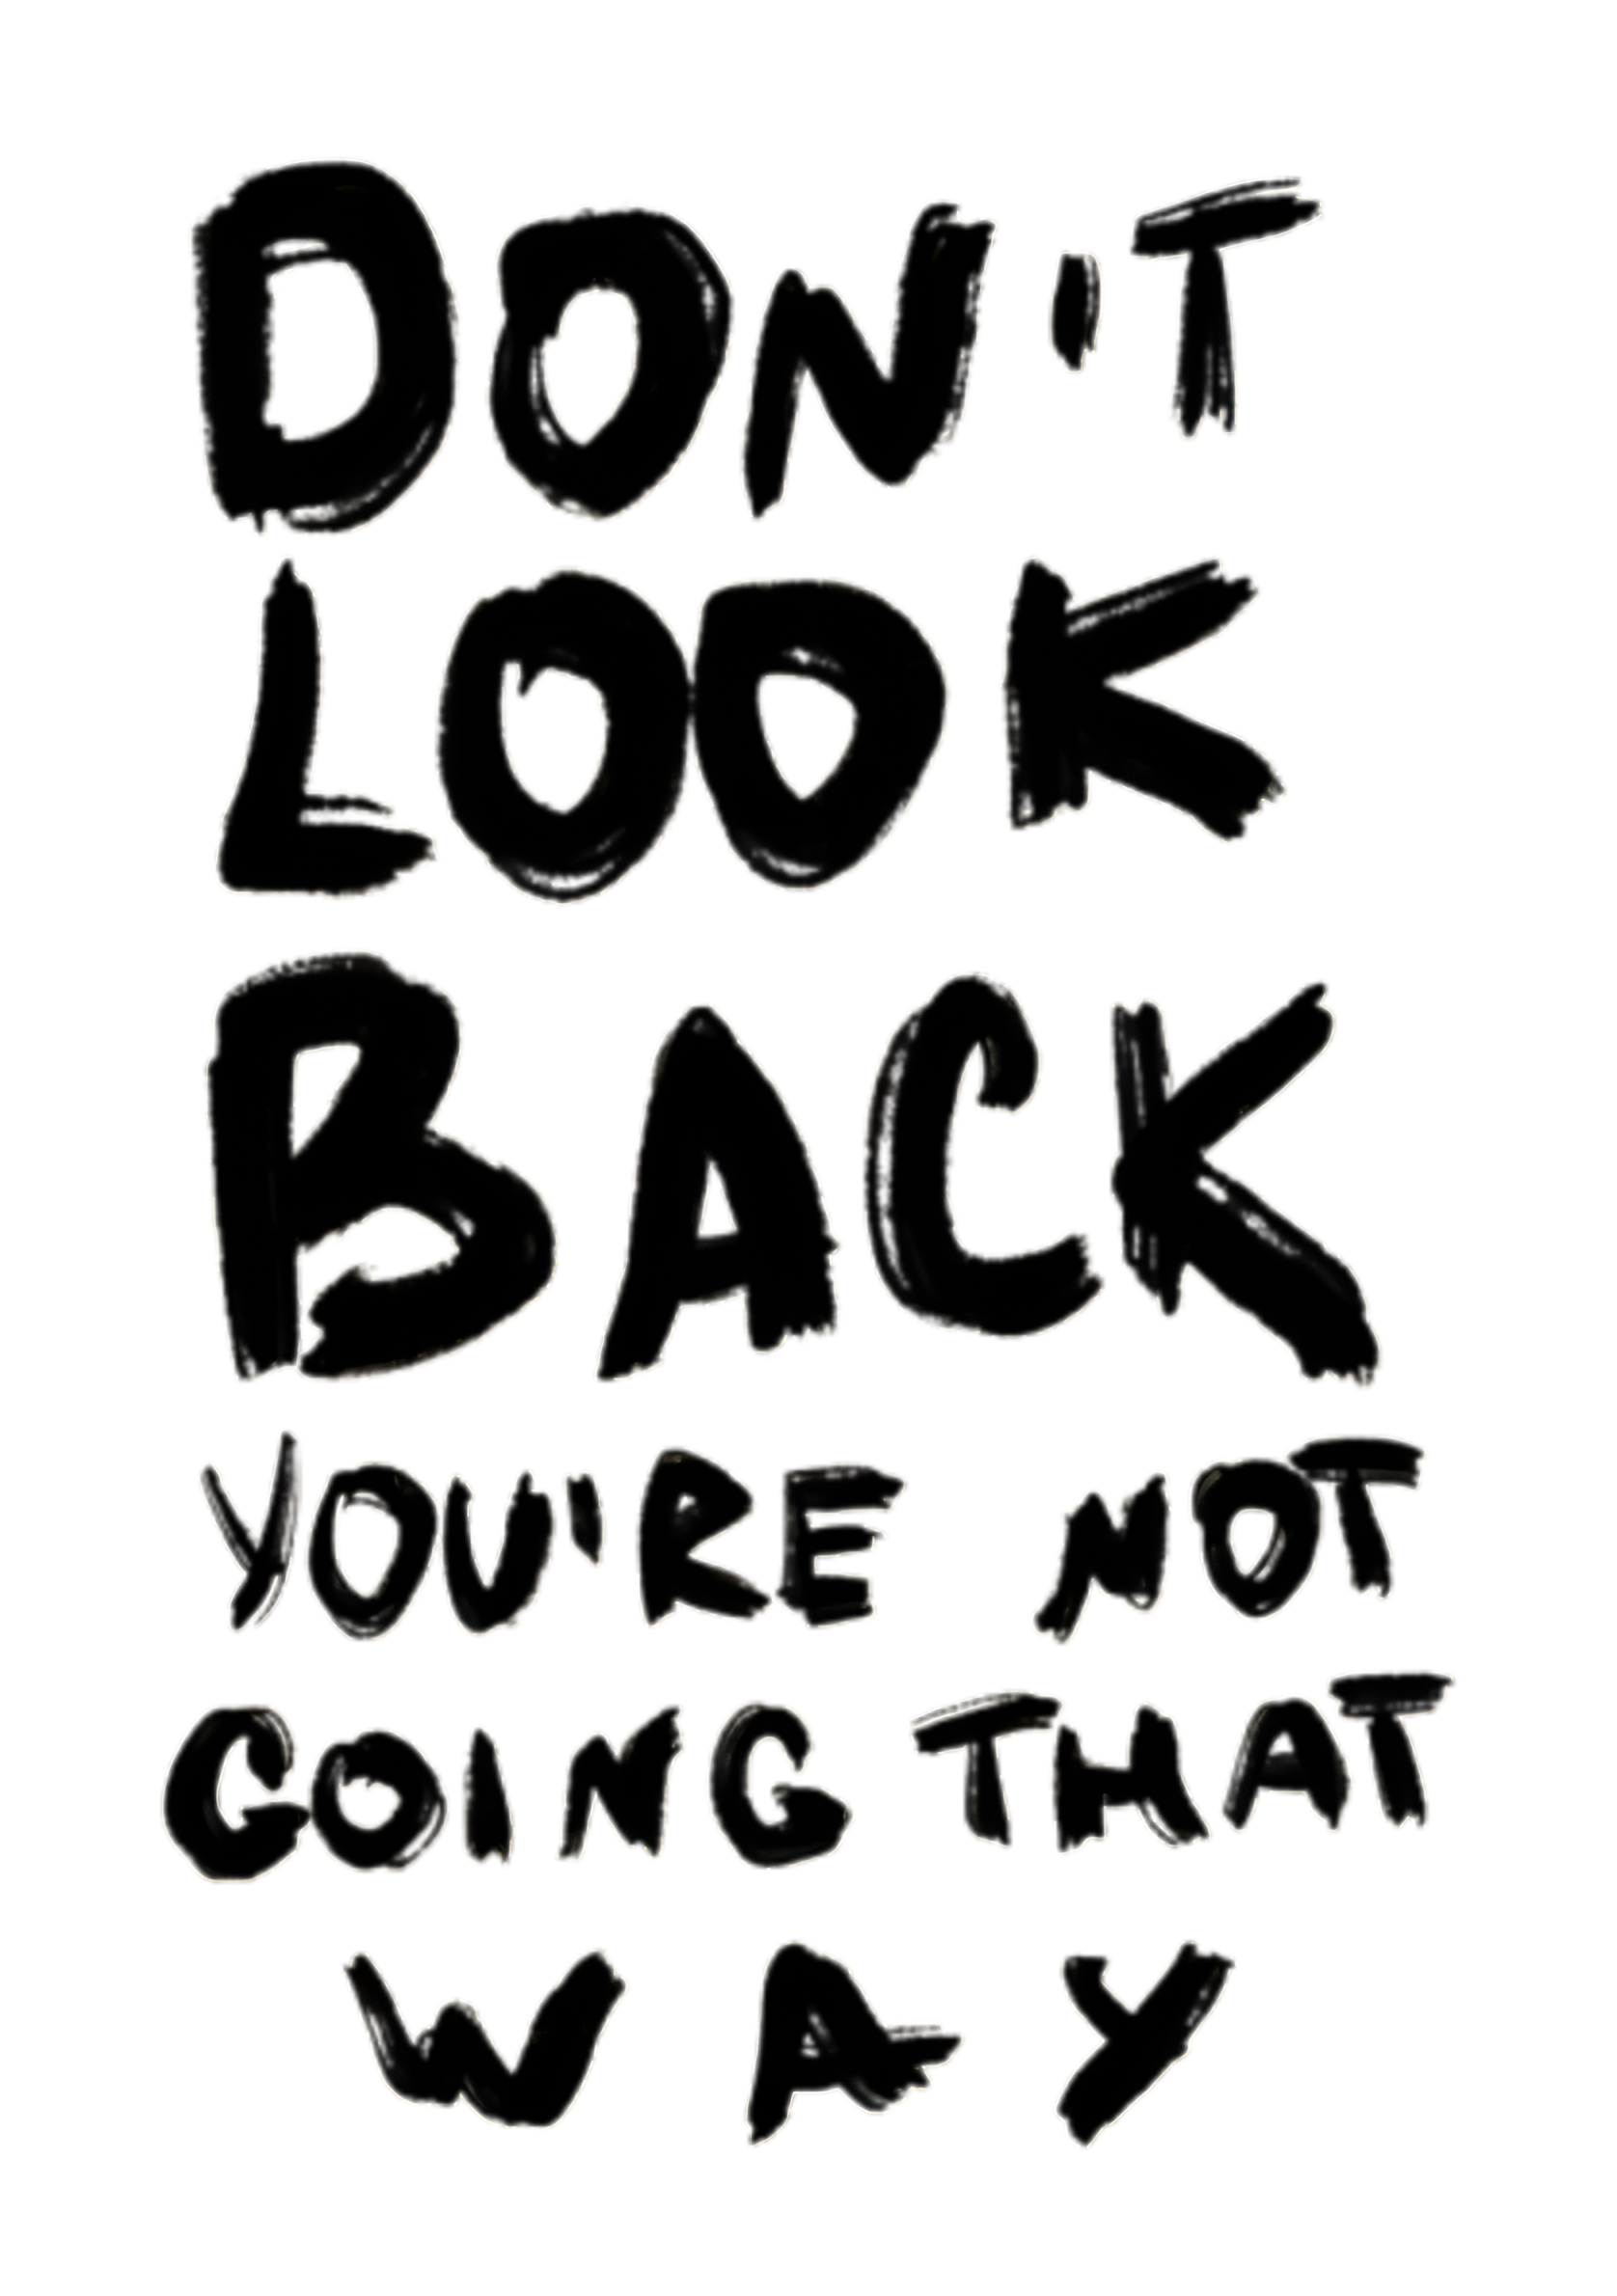 DON'T
LOOK
BACK
YOU'RE NOT
GOING THAT
WAY